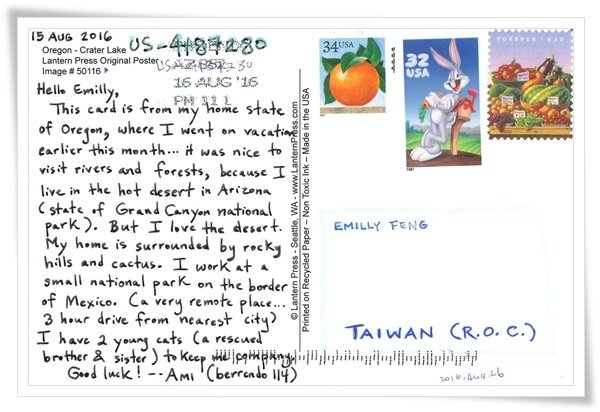 15 AUG 2016
Oregon - Crater Lake
Lantern Press Original Poster
Image # 50116
US-4187280
16 AUG '16
PM 111
Hello Emilly,
This card is from my home state
of Oregon, where I went on vacation
earlier this month... it was nice to
visit rivers and forests, because I
live in the hot desert in Arizona
(state of Grand Canyon national
park). But I love the desert.
My home is surrounded by rocky
hills and cactus. I work at a
small national park on the border
of Mexico. (a very remote place...
3 hour drive from nearest city)
I have 2 young cats (a rescued
brother & sister) to keep me company.
Good luck! -- Ami (berrendo114)
© Lantern Press - Seattle, WA - www.LanternPress.com
Printed on Recycled Paper – Non Toxic Ink – Made in the USA
34USA
32
USA
1997
FOREVER USA
EMILLY FENG
TAIWAN (R.O.C.)
2016.AUG.26